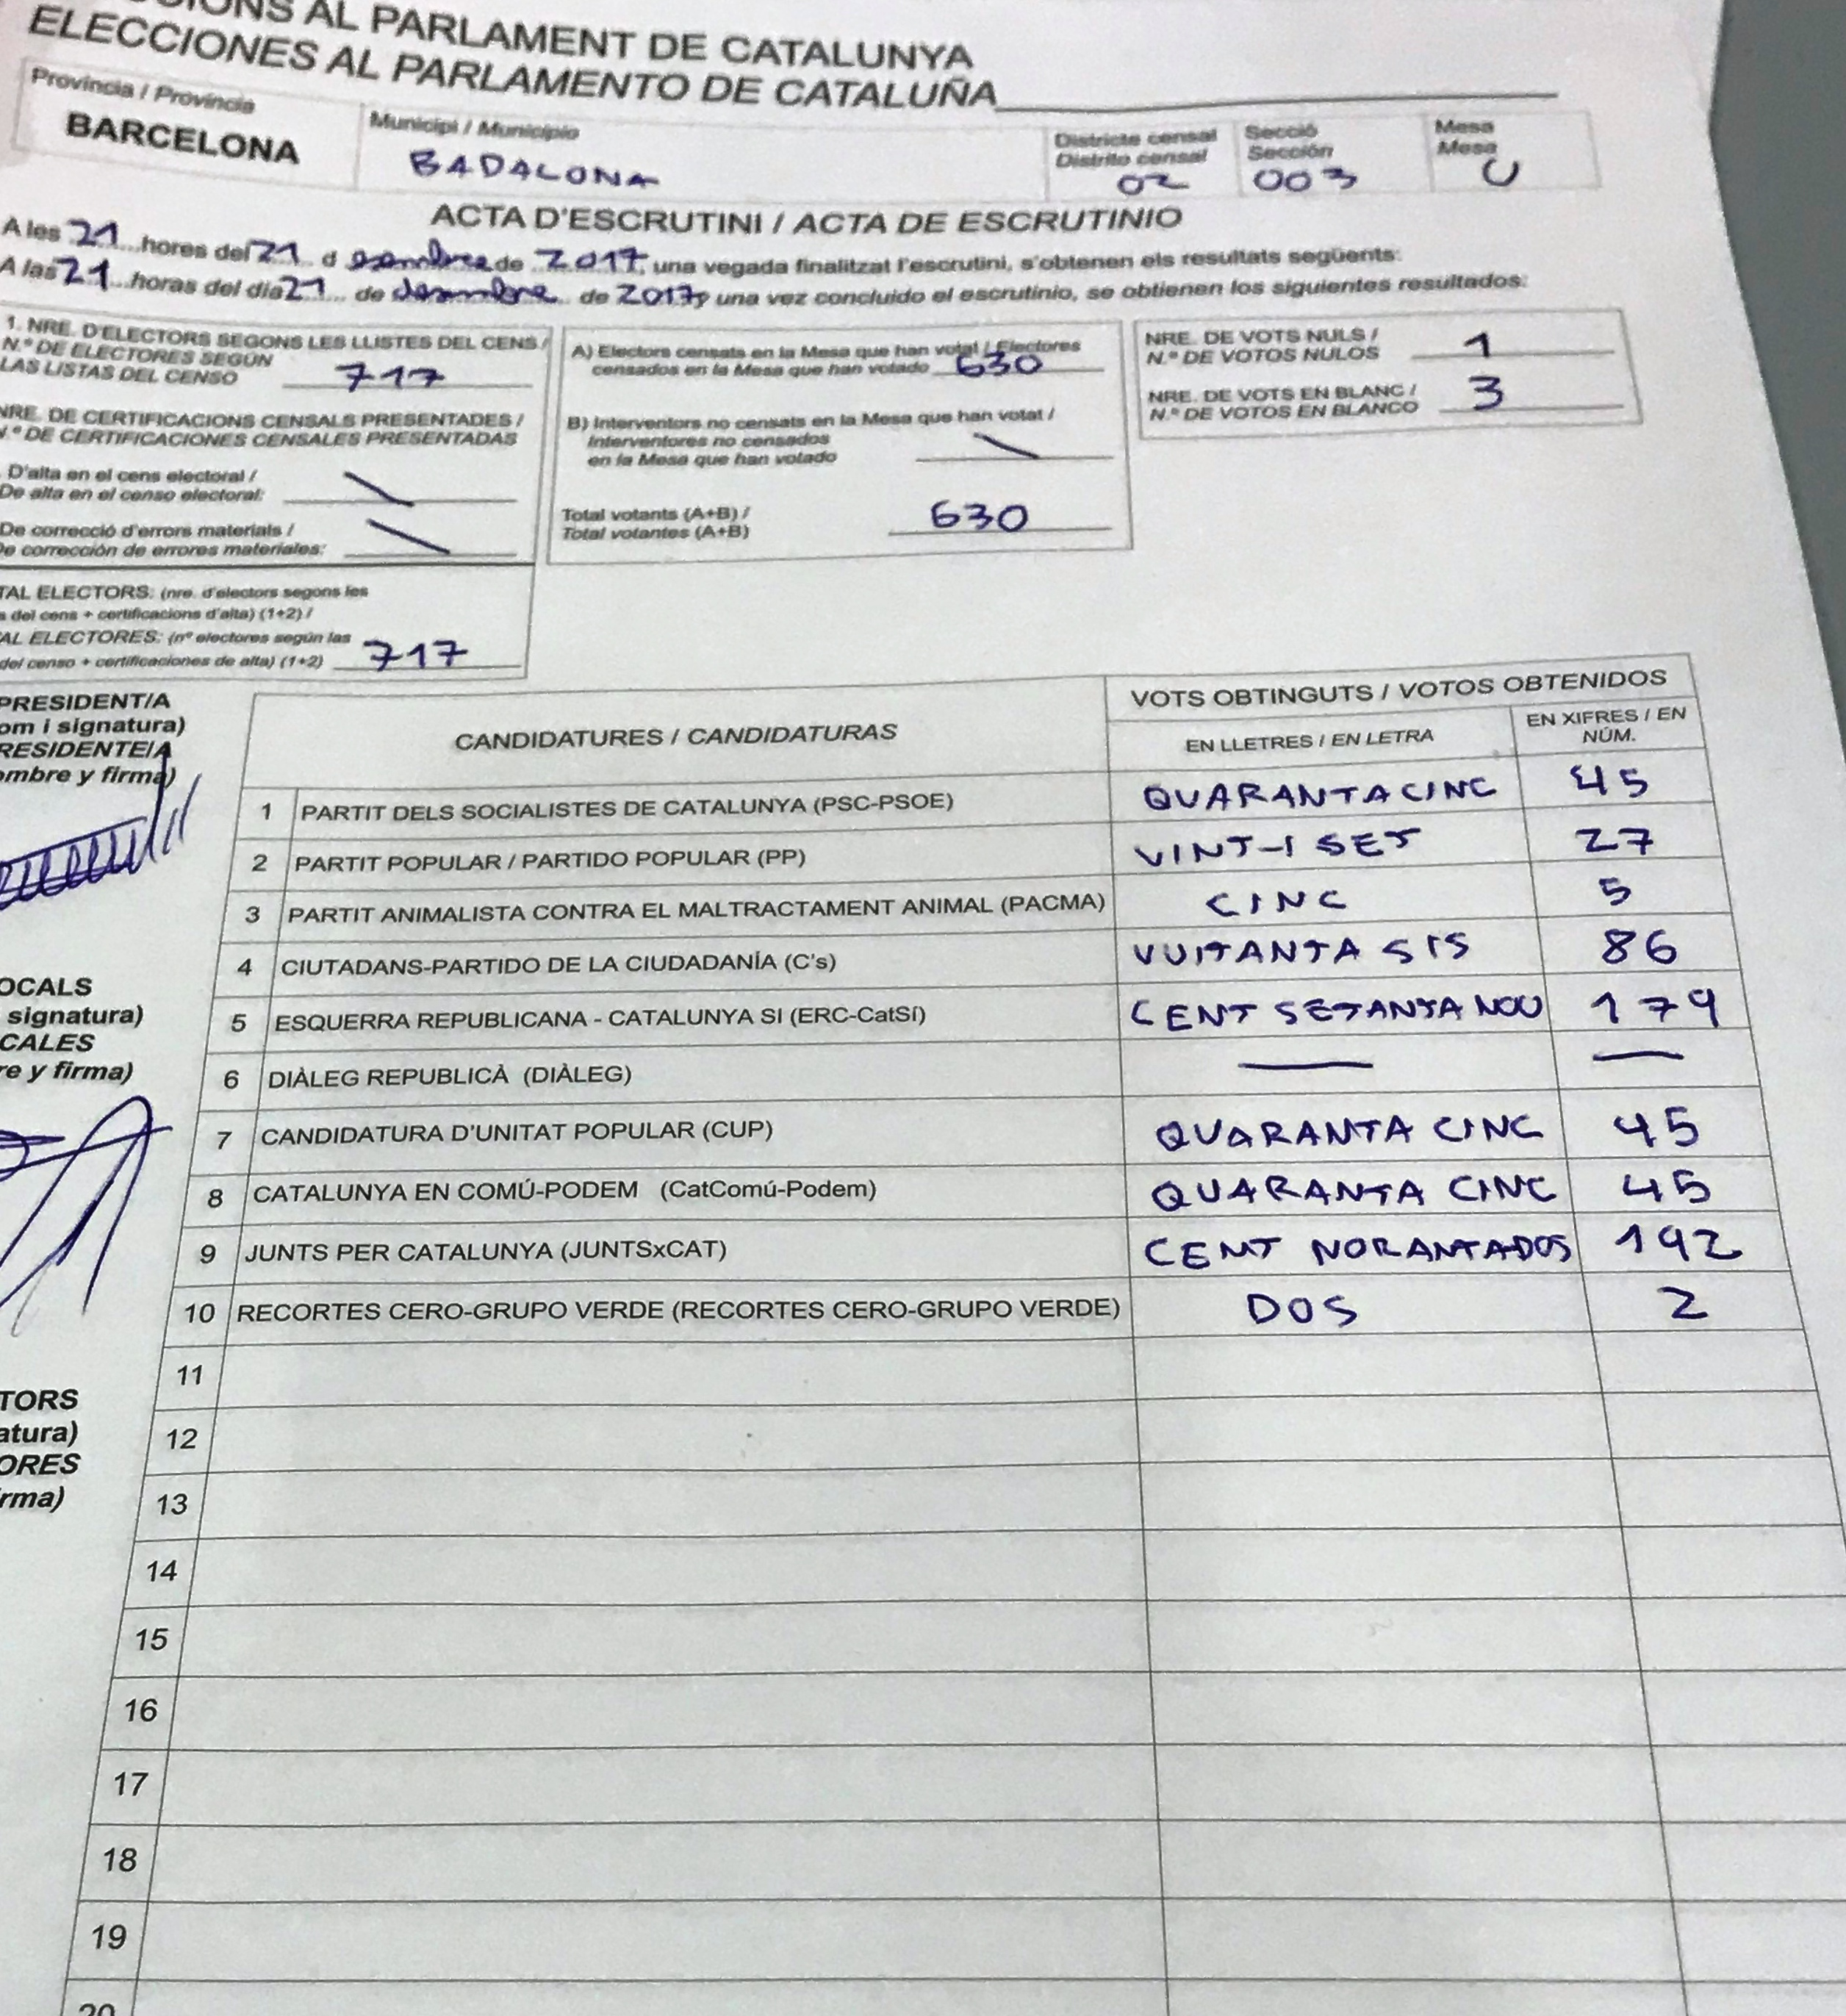 ELECCIONES AL PARLAMENT DE CATALUNYA
ELECCIONES AL PARLAMENTO DE CATALUÑA
Província / Provincia
BARCELONA
Municipi / Municipio
BADALONA
Districte censal
Distrito censal
02
Secció
Sección
003
Mesa
Mesa
U
ACTA D'ESCRUTINI / ACTA DE ESCRUTINIO
A les 21 hores del 21 d de 2017, una vegada finalitzat l'escrutini, s'obtenen els resultats següents:
A las 21 horas del día 21 de desembre de 2017, una vez concluido el escrutinio, se obtienen los siguientes resultados:
1. NRE. D'ELECTORS SEGONS LES LLISTES DEL CENS /
N.º DE ELECTORES SEGÚN
LAS LISTAS DEL CENSO 717
NRE. DE CERTIFICACIONS CENSALS PRESENTADES /
N.º DE CERTIFICACIONES CENSALES PRESENTADAS
. D'alta en el cens electoral /
De alta en el censo electoral:
De correcció d'errors materials /
De corrección de errores materiales:
TAL ELECTORS: (nre. d'electors segons les
s del cens + certificacions d'alta) (1+2) /
AL ELECTORES: (nº electores según las
del censo + certificaciones de alta) (1+2) 717
A) Electors censats en la Mesa que han votat / Electores
censados en la Mesa que han votado 630
B) Interventors no censats en la Mesa que han votat /
Interventores no censados
en la Mesa que han votado
Total votants (A+B) /
Total votantes (A+B) 630
NRE. DE VOTS NULS /
N.º DE VOTOS NULOS 1
NRE. DE VOTS EN BLANC /
N.º DE VOTOS EN BLANCO 3
CANDIDATURES / CANDIDATURAS
VOTS OBTINGUTS / VOTOS OBTENIDOS
EN LLETRES / EN LETRA
EN XIFRES / EN
NÚM.
1 PARTIT DELS SOCIALISTES DE CATALUNYA (PSC-PSOE) QUARANTA CINC 45
2 PARTIT POPULAR / PARTIDO POPULAR (PP) VINT-I SET 27
3 PARTIT ANIMALISTA CONTRA EL MALTRACTAMENT ANIMAL (PACMA) CINC 5
4 CIUTADANS-PARTIDO DE LA CIUDADANÍA (C's) VUITANTA SIS 86
5 ESQUERRA REPUBLICANA - CATALUNYA SI (ERC-CatSÍ) CENT SETANTA NOU 179
6 DIÀLEG REPUBLICÀ (DIÀLEG) — —
7 CANDIDATURA D'UNITAT POPULAR (CUP) QUARANTA CINC 45
8 CATALUNYA EN COMÚ-PODEM (CatComú-Podem) QUARANTA CINC 45
9 JUNTS PER CATALUNYA (JUNTSxCAT) CENT NORANTADOS 192
10 RECORTES CERO-GRUPO VERDE (RECORTES CERO-GRUPO VERDE) DOS 2
11
12
13
14
15
16
17
18
19
20
PRESIDENT/A
om i signatura)
RESIDENTE/A
ombre y firma)
OCALS
signatura)
CALES
re y firma)
TORS
atura)
ORES
irma)